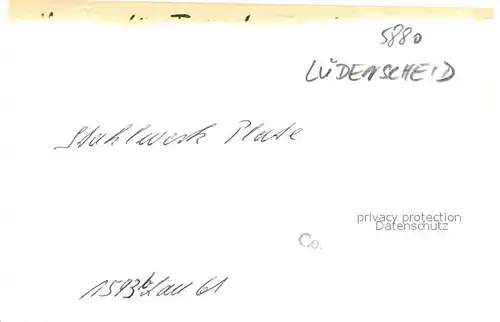 5880
LÜDENSCHEID
Stahlwerk Plate
privacy protection
Datenschutz
Co.
61